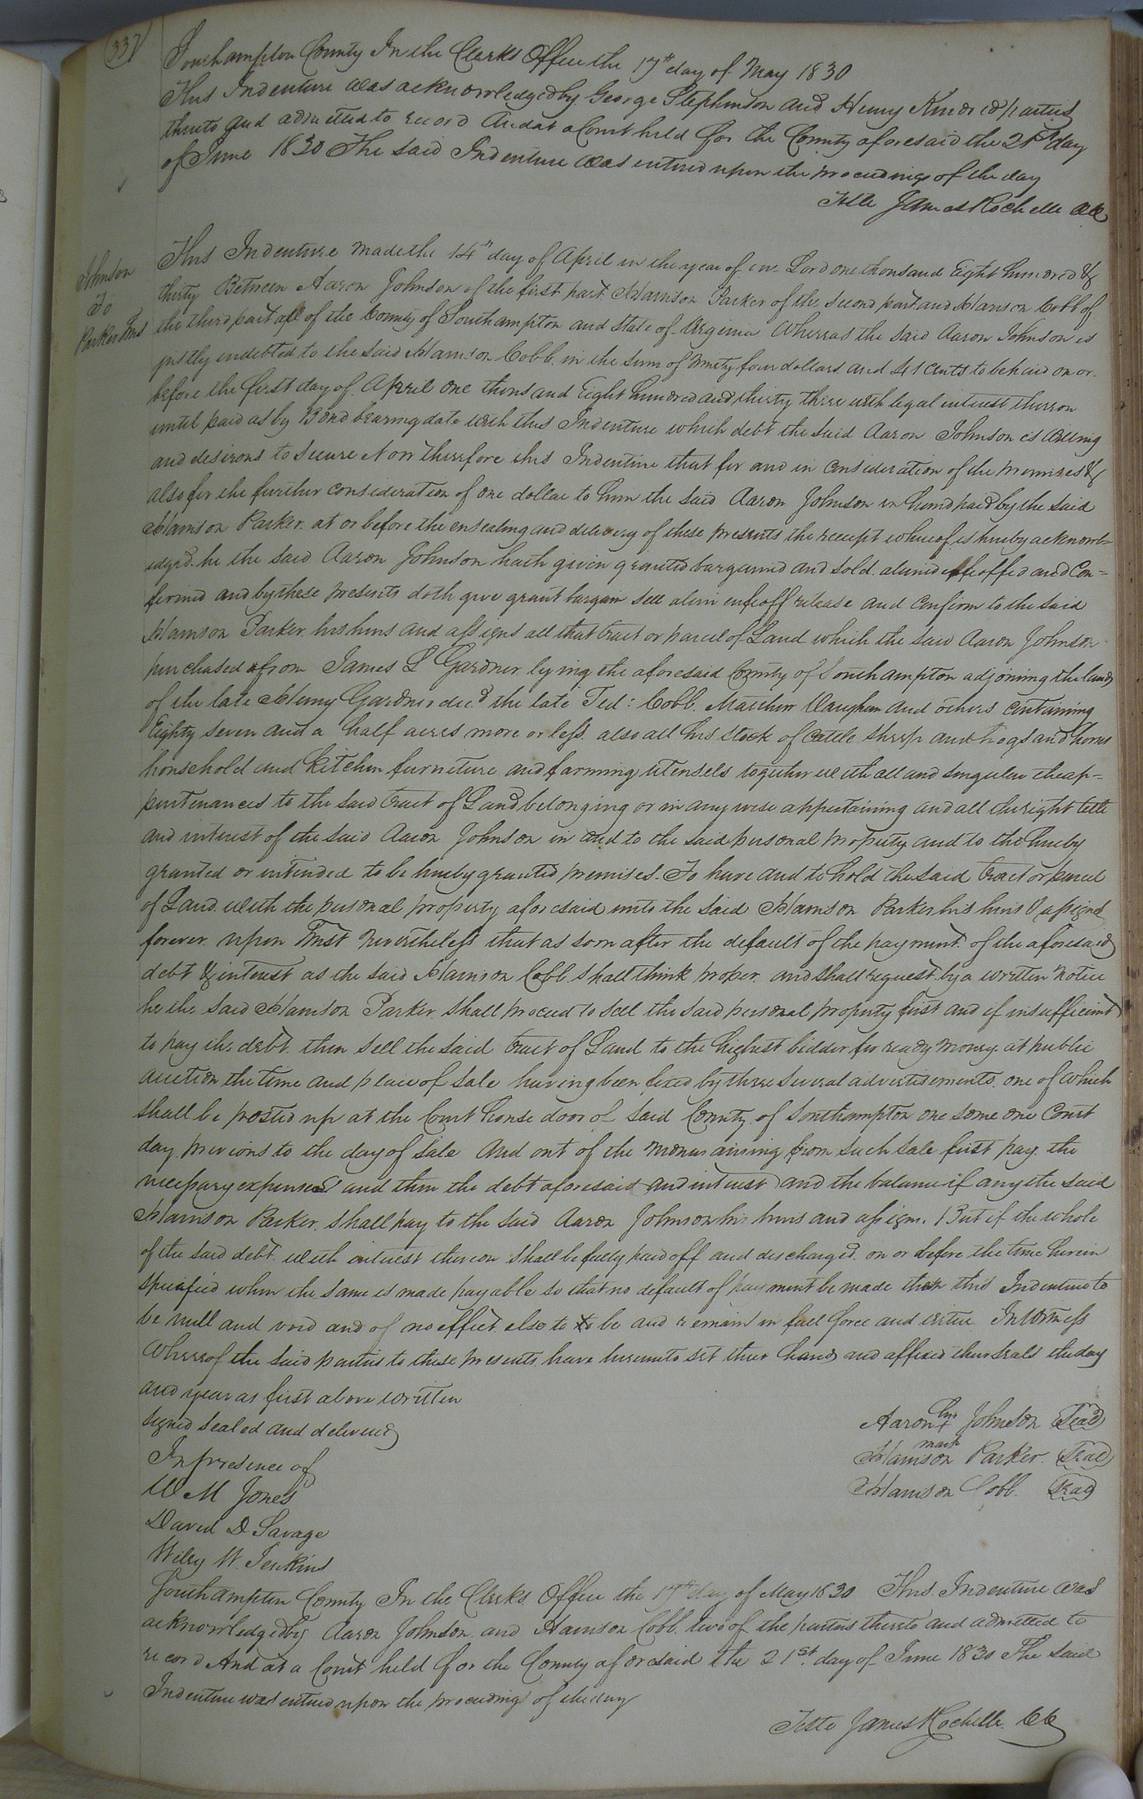 337
Southampton County In the Clerks Office the 17th day of May 1830
This Indenture was acknowledged by George Stephenson and Henry parties
thereto and admitted to record And at a Court held for the County aforesaid the 21st day
of June 1830 The said Indenture was entered upon the proceedings of the day
Teste James Rochelle CC
Johnson
To
Parker Trus
This Indenture made the 14th day of April in the year of our Lord one thousand Eight hundred &
thirty Between Aaron Johnson of the first part Harrison Parker of the second part and Harrison Cobb of
the third part all of the County of Southampton and State of Virginia Whereas the said Aaron Johnson is
justly indebted to the said Harrison Cobb in the sum of Ninety four dollars and 41 cents to be paid on or
before the first day of April one thousand Eight hundred and thirty three with legal interest thereon
until paid as by Bond bearing date with this Indenture which debt the said Aaron Johnson is willing
and desirous to secure Now therefore this Indenture that for and in consideration of the premises &
also for the further consideration of one dollar to him the said Aaron Johnson in hand paid by the said
Harrison Parker at or before the ensealing and delivery of these presents the receipt whereof is hereby acknowl-
edged he the said Aaron Johnson hath given granted bargained and sold aliened enfeoffed and Con-
firmed and by these presents doth give grant bargain sell alien enfeoff release and confirm to the said
Harrison Parker his heirs and assigns all that tract or parcel of Land which the said Aaron Johnson
purchased of from James L Gardner lying the aforesaid County of Southampton adjoining the lands
of the late Henry Gardner decd the late Ted: Cobb Matthew Vaughan and others containing
Eighty seven and a half acres more or less also all his stock of cattle sheep and hogs and horses
household and kitchen furniture and farming utensels together with all and singular the ap-
purtenances to the said tract of Land belonging or in any wise appertaining and all the right title
and interest of the said Aaron Johnson in and to the said personal property and to the hereby
granted or intended to be hereby granted premises. To have and to hold the said tract or parcel
of Land with the personal property aforesaid unto the said Harrison Parker his heirs & assigns
forever upon Trust Nevertheless that as soon after the default of the payment of the aforesaid
debt & interest as the said Harrison Cobb shall think proper and shall request by a written notice
he the said Harrison Parker shall proceed to sell the said personal property first and if insufficient
to pay the debt then sell the said tract of Land to the highest bidder for ready money at public
auction the time and place of sale having been fixed by three several advertisements one of which
shall be posted up at the Court house door of said County of Southampton one some one Court
day previous to the day of sale And out of the monies arising from such sale first pay the
necessary expenses and then the debt aforesaid and interest and the balance if any the said
Harrison Parker shall pay to the said Aaron Johnson his heirs and assigns. But if the whole
of the said debt with interest thereon shall be fully paid off and discharged on or before the time herein
specified when the same is made payable so that no default of payment be made then this Indenture to
be null and void and of no effect else to be and remain in full force and virtue In Witness
Whereof the said parties to these presents have hereunto set their hands and affixed their seals the day
and year as first above written
Signed sealed and delivered
In presence of
W M Jones
David D Savage
Wiley W. Jenkins
Aaron his + mark Johnson Seal
Harrison Parker Seal
Harrison Cobb Seal
Southampton County In the Clerks Office the 17th day of May 1830 This Indenture was
acknowledged by Aaron Johnson and Harrison Cobb two of the parties thereto and admitted to
record And at a Court held for the County aforesaid the 21st day of June 1830 The said
Indenture was entered upon the proceedings of the day
Teste James Rochelle CC